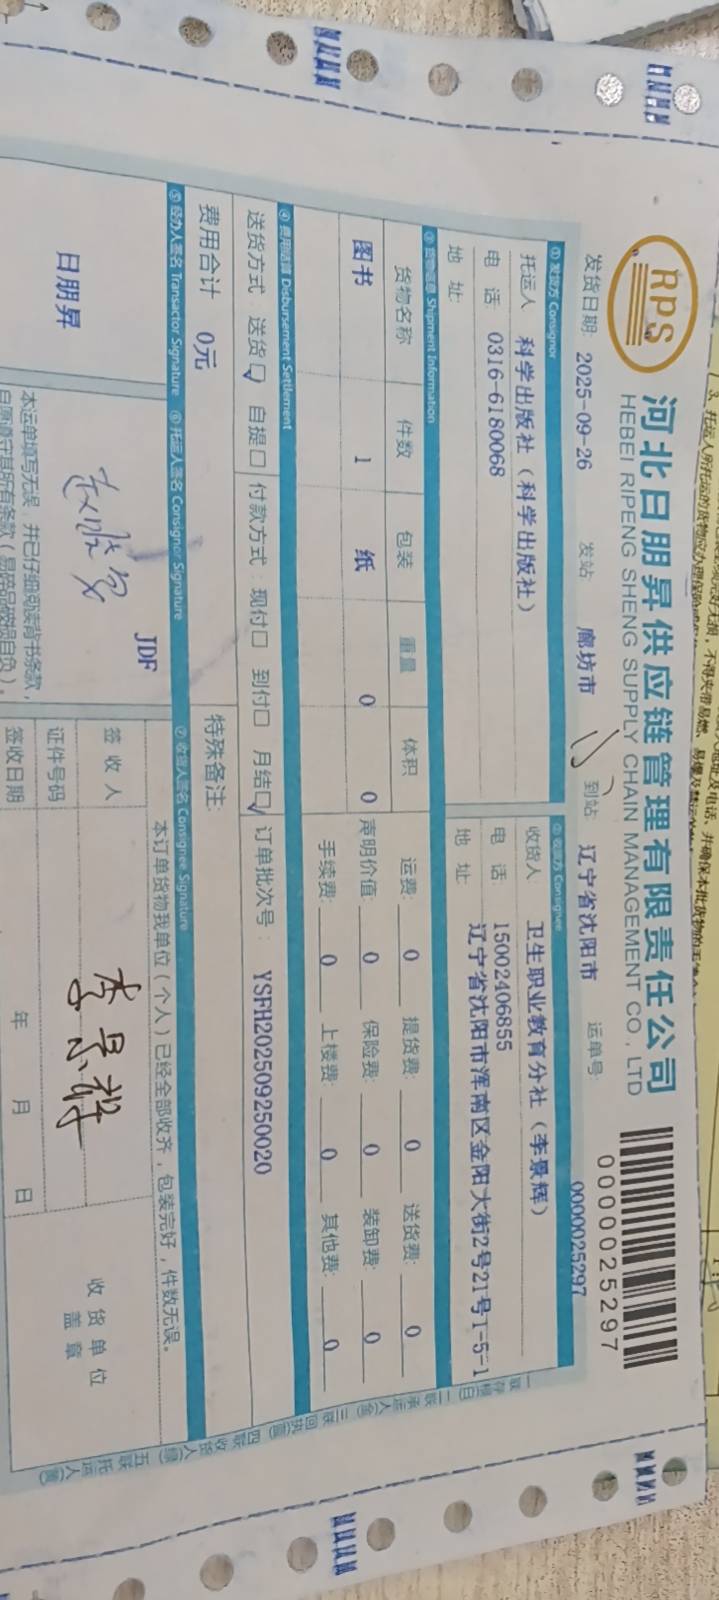 RPS
河北日朋昇供应链管理有限责任公司
HEBEI RIPENG SHENG SUPPLY CHAIN MANAGEMENT CO., LTD
0000025297
发货日期: 2025-09-26 发站 廊坊市 到站 辽宁省沈阳市 运单号: 0000025297
① 发货方 Consignor
托运人 科学出版社（科学出版社）
电 话: 0316-6180068
地 址:
② 收货方 Consignee
收货人 卫生职业教育分社（李景辉）
电 话: 15002406855
地 址: 辽宁省沈阳市浑南区金阳大街2号21号1-5-1
③ 货物信息 Shipment Information
货物名称 件数 包装 重量 体积
图书 1 纸 0 0
运费: 0 提货费: 0 送货费: 0
声明价值: 0 保险费: 0 装卸费: 0
手续费: 0 上楼费: 0 其他费: 0
④ 费用结算 Disbursement Settlement
送货方式: 送货☑ 自提☐ 付款方式: 现付☐ 到付☐ 月结☑ 订单批次号: YSFH202509250020
费用合计 0元
特殊备注:
⑤ 经办人签名 Transactor Signature ⑥ 托运人签名 Consignor Signature ⑦ 收货人签名 Consignee Signature
日朋昇
JDF
本运单填写无误，并已仔细阅读背书条款，
自愿遵守其所有条款（易碎品破损自负）。
本订单货物我单位（个人）已经全部收齐，包装完好，件数无误。
签 收 人 李景辉
证件号码
签收日期 年 月 日
收 货 单 位
盖 章